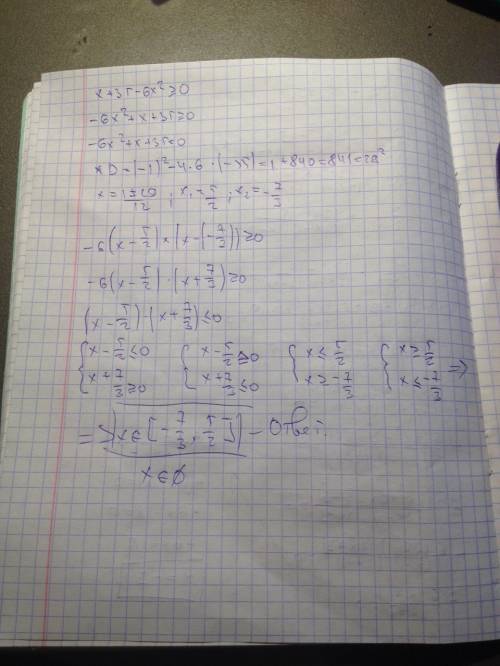 x+35-6x²≥0
-6x²+x+35≥0
-6x²+x+35=0
xD=(-1)²-4·6·(-35)=1+840=841=29²
x=1±29/12 ; x₁=5/2 ; x₂=-7/3
-6(x-5/2)×(x-(-7/3))≥0
-6(x-5/2)·(x+7/3)≥0
(x-5/2)·(x+7/3)≤0
{x-5/2≤0 {x-5/2≥0 {x≤5/2 {x≥5/2
x+7/3≥0 x+7/3≤0 x≥-7/3 x≤-7/3 =>
=> x∈[-7/3, 5/2] - Ответ.
x∈∅